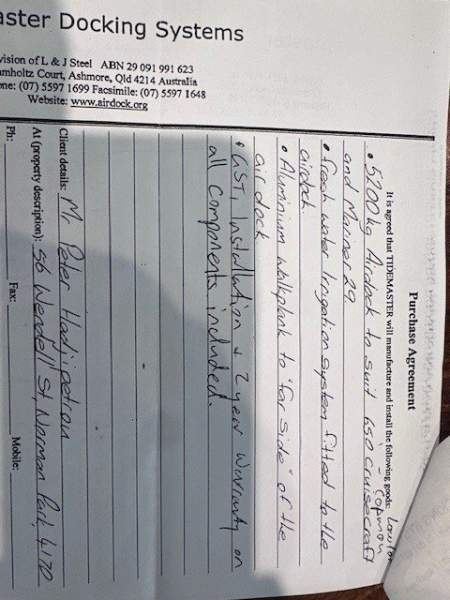 aster Docking Systems
vision of L & J Steel ABN 29 091 991 623
mholtz Court, Ashmore, Qld 4214 Australia
ne: (07) 5597 1699 Facsimile: (07) 5597 1648
Website: www.airdock.org
Purchase Agreement
It is agreed that TIDEMASTER will manufacture and install the following goods:
• 5200kg Airdock to suit 650 cruisecraft
and Mariner 29.
• fresh water Irrigation system fitted to the
airdock.
• Aluminium walkplank to "far side" of the
airdock
• GST, Installation + 2 year Warranty on
all components included.
Client details: Mr Peter Hadjipetrou
At (property description): 56 Wendell St, Norman Park, 4170
Ph: Fax: Mobile: